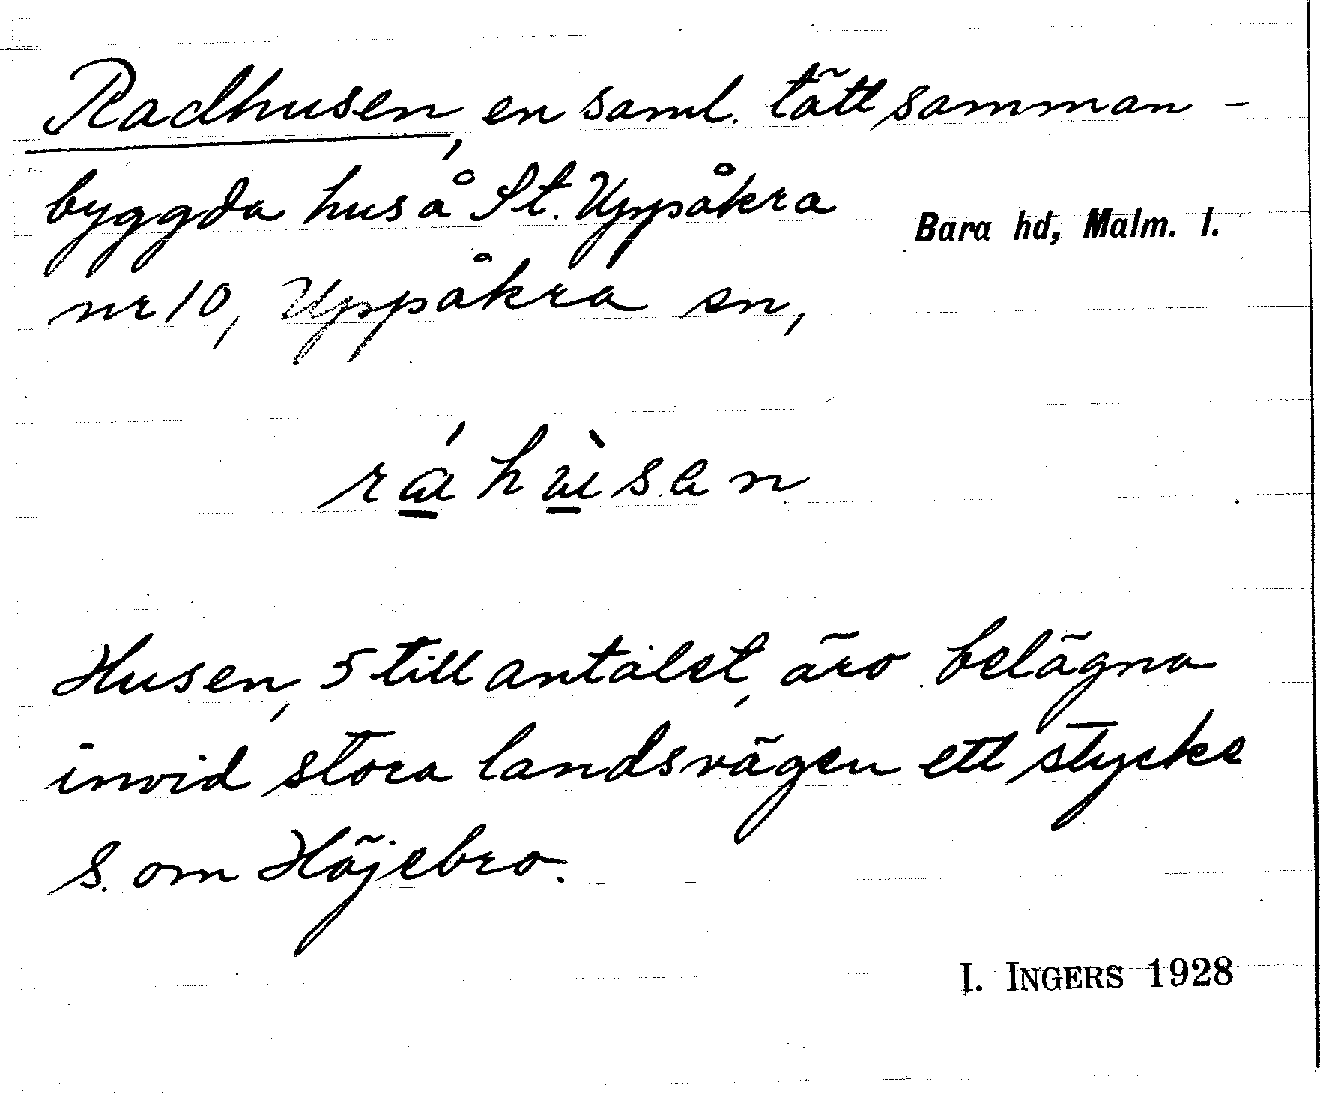 Radhusen, en saml. tätt samman-
byggda hus å St. Uppåkra
Bara hd, Malm. l.
nr 10, Uppåkra sn,
Husen, 5 till antalet, äro belägna
invid stora landsvägen ett stycke
S. om Höjebro.
I. INGERS 1928